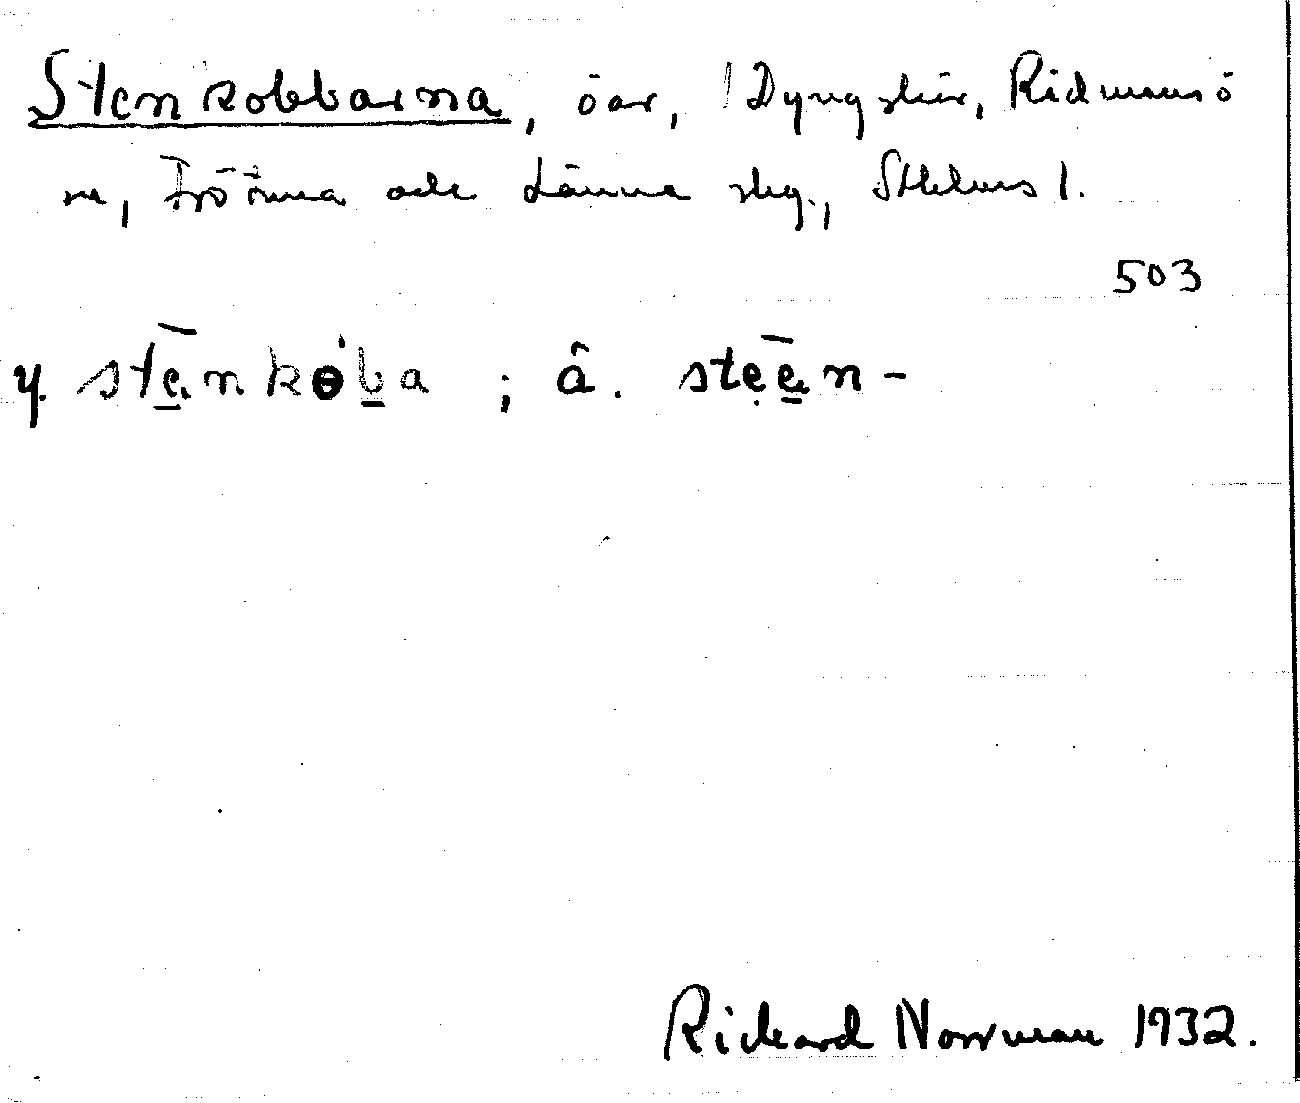 Stenkobbarna, öar, Dyngskär, Ridmansö
ne, Frötuna och Länna skg., Sthlms l.
503
y. ste̱nkөḇa ; â. stẹe̱n-
Rickard Norrman 1932.